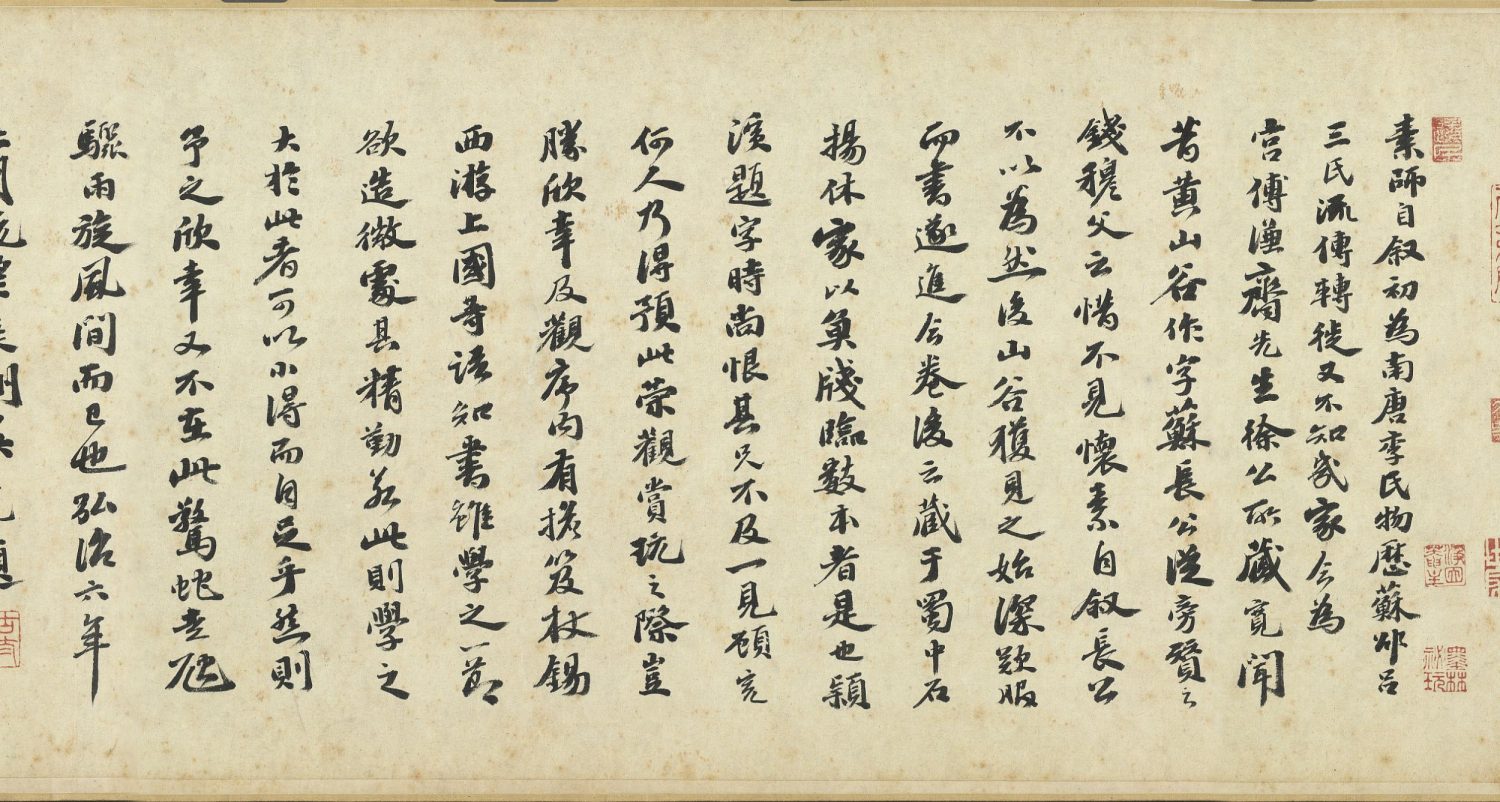 素師自叙初為南唐李氏物歷蘇邵呂
三氏流傳轉徙又不知幾家今為
宫傅謙齋先生徐公所藏寛聞
昔黄山谷作字蘇長公從旁賛之
錢穆父云惜不見懷素自叙長公
不以為然後山谷獲見之始潔歎服
而書遂進今卷後云蔵于蜀中石
揚休家以魚牋臨數本者是也潁
濱題字時尚恨其兄不及一見顧寛
何人乃得預此荣觀賞玩之際豈
勝欣幸及觀序内有擔笈杖錫
西游上國等語知書雖學之一節
欲造微處其精勤若此則學之
大於此者可以小得而自足乎然則
予之欣幸又不在此驚蛇走虺
驟雨旋風間而已也弘治六年